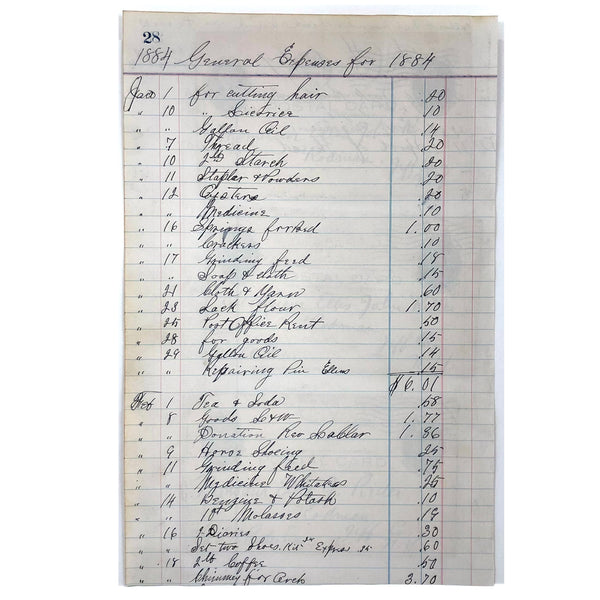 28
1884 General Expenses for 1884
Jan 1 for cutting hair .20
" 10 " .10
" " Gallon Oil .14
" 7 Thread .20
" 10 2 lb Starch .20
" 11 Staples & Powders .20
" 12 Oysters .20
" " Medicine .10
" 16 Springs for Bed 1.00
" " Crackers .10
" 17 Grinding feed .18
" " Soap & cloth .15
" 21 Cloth & Yarn .60
" 23 Sack flour 1.70
" 25 Post Office Rent .50
" 28 for goods .15
" 29 Gallon Oil .14
" " Repairing Pin Ellens .15
$6.01
Feb 1 Tea & Soda .58
" 8 Goods 1.77
" " Donation Rev 1.36
" 9 Horse Shoeing .25
" 11 Grinding feed .75
" " Medicine Whitakers .25
" 14 Benzine & Potash .10
" " Molasses .18
" 16 2 Diaries .30
" " Set two Shoes .60
" 18 2 lb Coffee .50
" " Chimney for Arch 3.70